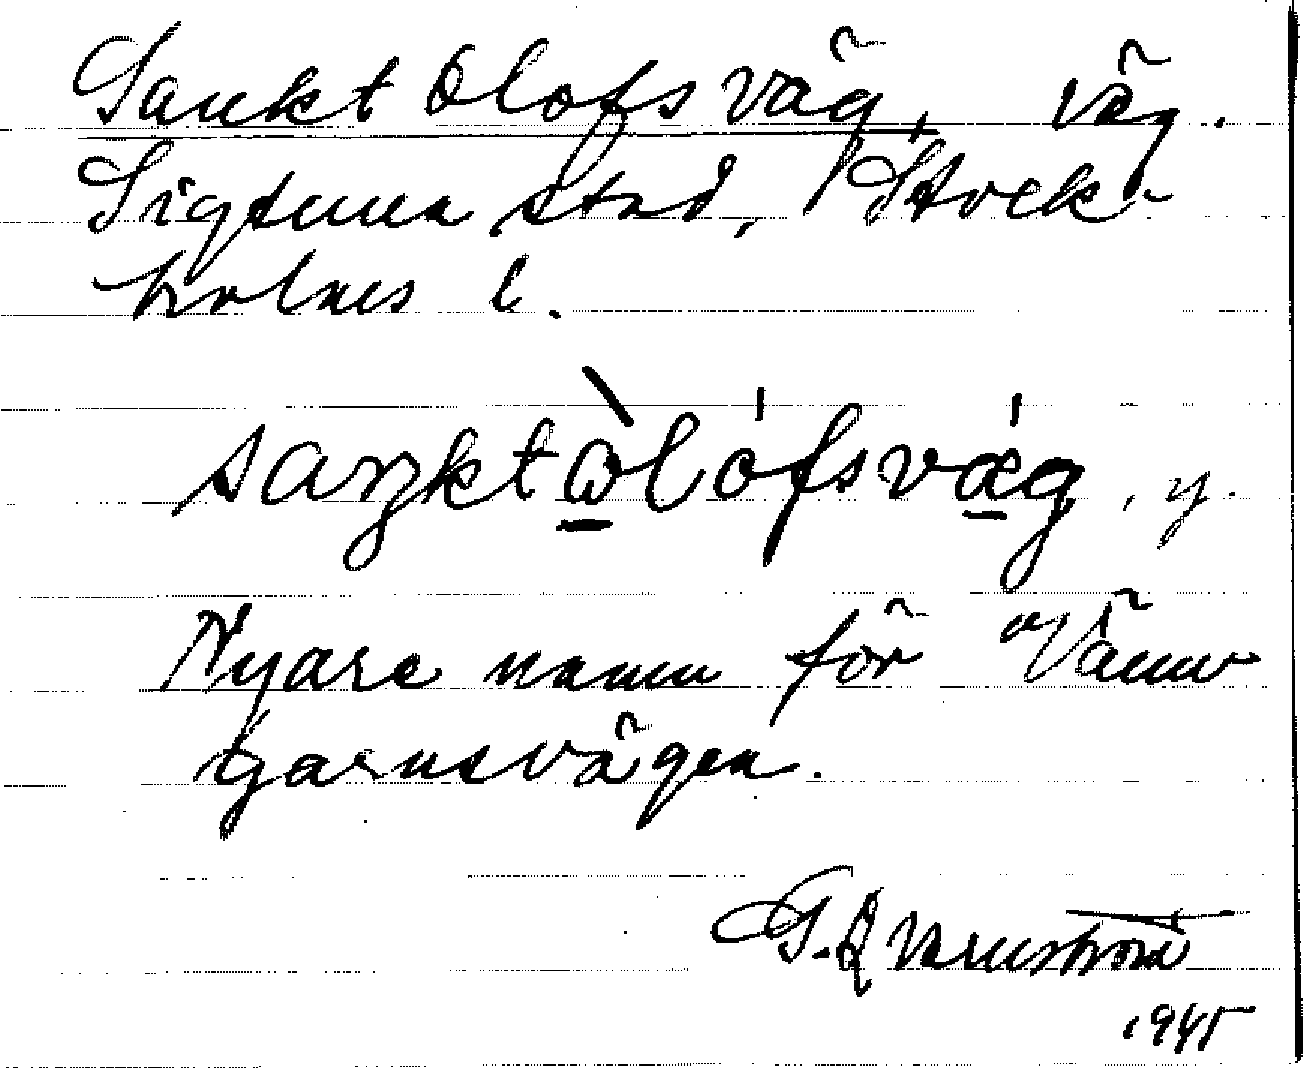 Sankt Olofs väg, väg.
Sigtuna stad, Stock-
holms l.
saŋktòlófsvæ̀g, y.
Nyare namn för "Vänn-
garnsvägen.
G. Qvarnström
1945